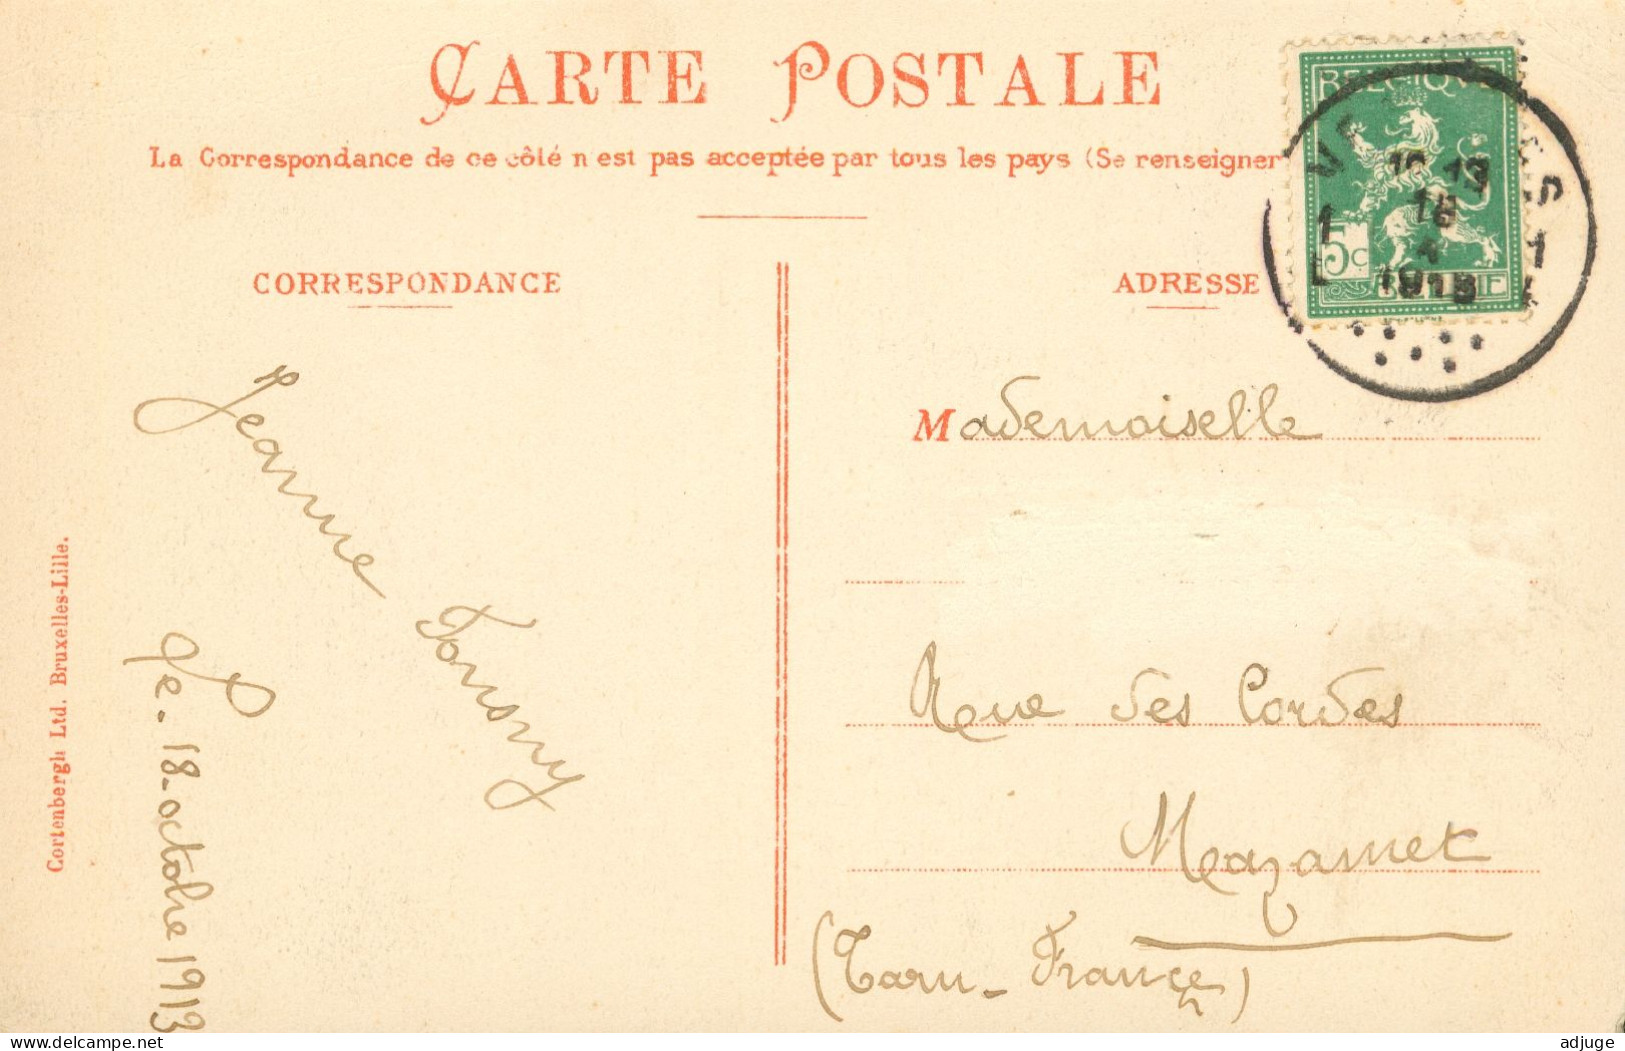 CARTE POSTALE
La Correspondance de ce côté n'est pas acceptée par tous les pays (Se renseigner
CORRESPONDANCE
ADRESSE
BELGIQUE
5c
1
1
18
1913
Mademoiselle
Rue des Cordes
Mazamet
(Tarn - France)
Jeanne
Le - 18 - octobre 1913
Cortenbergh Ltd. Bruxelles-Lille.
adjuge.com